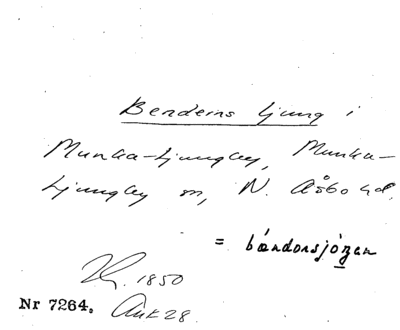 Benderns Ljung i
Munka-Ljungby, Munka-
Ljungby sn, N. Åsbo hd.
= bǿndorsjǫ́gan
1850
Nr 7264. Ank 28